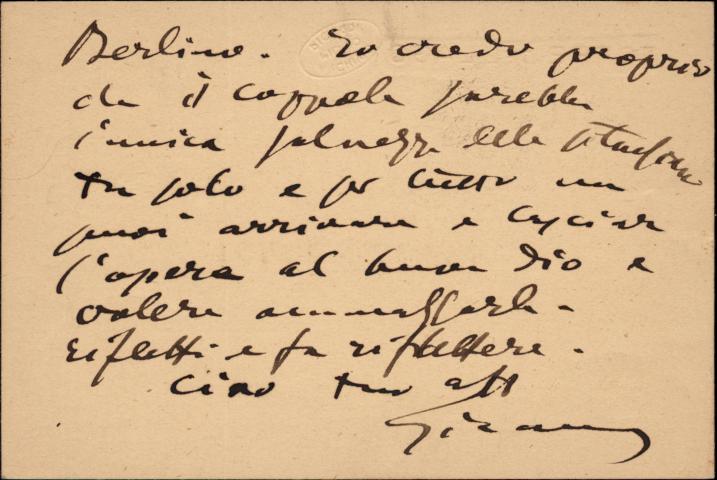 Berlino. Io credo proprio
che il Coppola sarebbe
l'unica salvezza della situazione
tu solo e per tutto non
puoi arrivare e lasciare
l'opera al buon Dio e
volere ammazzarla.
Rifletti e fa riflettere.
Ciao tuo aff